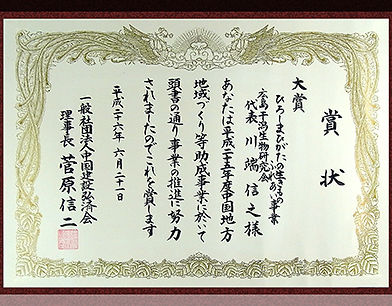 賞状
大賞
ひろしまひがたの生きものふれあい事業
広島干潟生物研究会
代表 川端信之様
あなたは平成二十五年度中国地方
地域づくり等助成事業に於いて
頭書の通り事業の推進に努力
されましたのでこれを賞します
平成二十六年 六月二十一日
一般社団法人中国建設弘済会
理事長 菅原信二